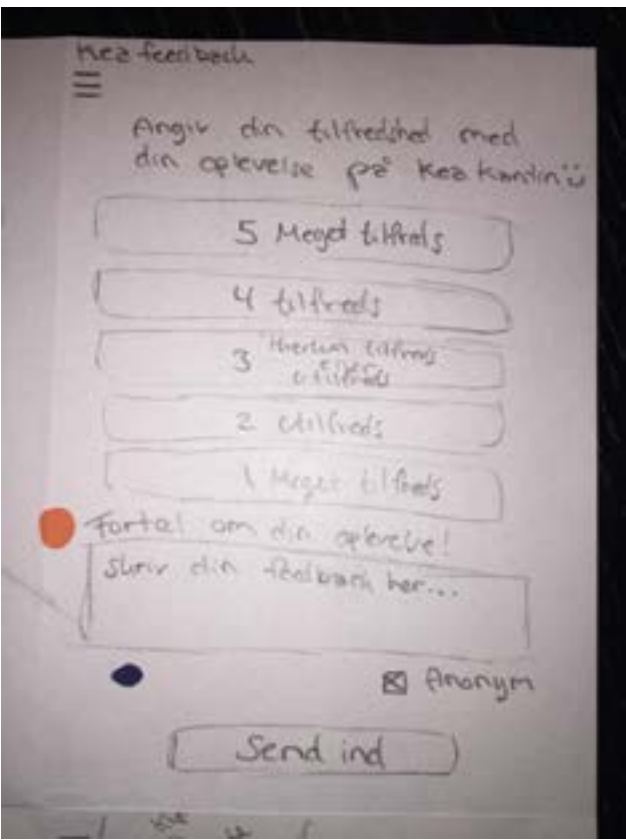 Kea feedback
Angiv din tilfredshed med
din oplevelse på Kea Kantin
5 Meget tilfreds
4 tilfreds
3 Hverken tilfreds
eller
utilfreds
2 Utilfreds
1 Meget tilfreds
Fortæl om din oplevelse!
Skriv din feedback her...
Anonym
Send ind